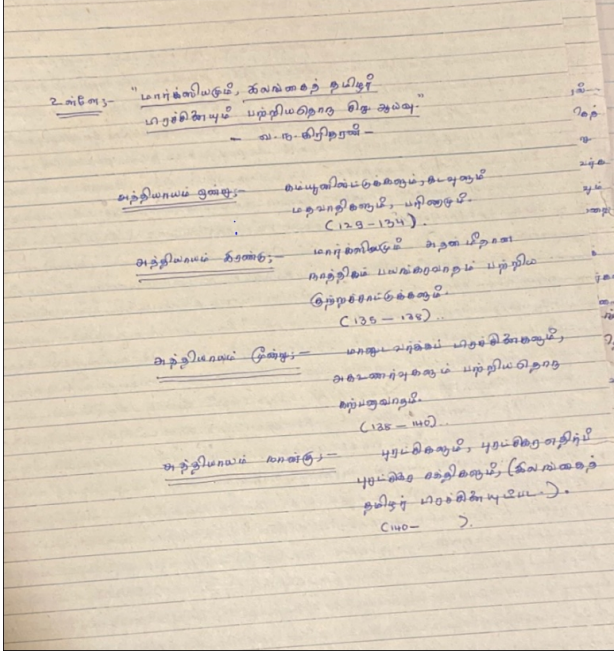 உள்ளே:- "மார்க்ஸியமும், இலங்கைத் தமிழர்
பிரச்சினையும் பற்றியதொரு சிறு ஆய்வு."
- வ.ந.கிரிதரன் -
அத்தியாயம் ஒன்று:- கம்யூனிஸ்ட்டுக்களும், கடவுளும்
மதவாதிகளும், பரிணாமும்.
(129-134).
அத்தியாயம் இரண்டு:- மார்க்ஸியமும் அதன் மீதான
நாத்திகம் பயங்கரவாதம் பற்றிய
குற்றச்சாட்டுக்களும்.
(135 - 138)..
அத்தியாயம் மூன்று:- மானுடவர்க்கப் பிரச்சினைகளும்,
அகஉணர்வுகளும் பற்றியதொரு
கற்பனாவாதம்.
(138 - 140)..
அத்தியாயம் நான்கு:- புரட்சிகளும், புரட்சிகரஎதிர்ப்
புரட்சிகர சக்திகளும், (இலங்கைத்
தமிழர் பிரச்சினையுட்பட.).
(140- ).